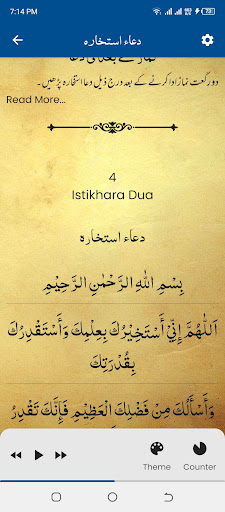 7:14 PM
73
دعاء استخارہ
نماز کے بعد کی دعا
دو رکعت نماز ادا کرنے کے بعد درج ذیل دعا استخارہ پڑھیں۔
Read More...
4
Istikhara Dua
دعاء استخارہ
بِسْمِ اللهِ الرَّحْمٰنِ الرَّحِيْمِ
اَللّٰهُمَّ إِنِّيْ أَسْتَخِيْرُكَ بِعِلْمِكَ وَأَسْتَقْدِرُكَ
بِقُدْرَتِكَ
وَأَسْأَلُكَ مِنْ فَضْلِكَ الْعَظِيْمِ فَإِنَّكَ تَقْدِرُ
Theme
Counter